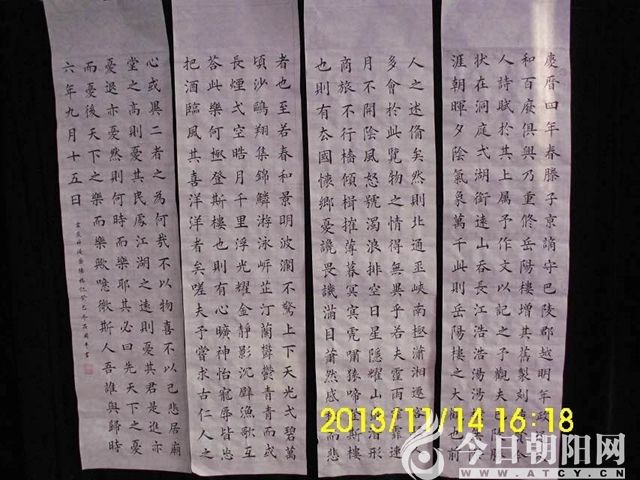 慶曆四年春滕子京謫守巴陵郡越明年政
和百廢俱興乃重修岳陽樓增其舊制刻
人詩賦於其上属予作文以記之予觀夫
狀在洞庭弌湖銜遠山吞長江浩浩湯湯
涯朝暉夕陰氣象萬千此則岳陽樓之大觀也前
人之述俻矣然則北通巫峽南極瀟湘遷
多會於此覽物之情得無異乎若夫霪雨霏連
月不開陰風怒號濁浪排空日星隱耀山潛形
商旅不行檣傾楫摧薄暮冥冥虎嘯猿啼斯樓
也則有去國懷鄉憂讒畏譏滿目蕭然感而悲
者也至若春和景明波瀾不驚上下天光弌碧萬
頃沙鷗翔集錦鱗游泳岸芷汀蘭鬱鬱青青而或
長煙弌空皓月千里浮光耀金靜影沉璧漁歌互
荅此樂何極登斯樓也則有心曠神怡寵辱皆忘
把酒臨風其喜洋洋者矣嗟夫予嘗求古仁人之
心或異二者之為何哉不以物喜不以己悲居廟
堂之高則憂其民處江湖之遠則憂其君是進亦
憂退亦憂然則何時而樂耶其必曰先天下之憂
而憂後天下之樂而樂歟噫微斯人吾誰與歸時
六年九月十五日
2013/11/14 16:18
今日朝阳网
WWW.ATCY.CN